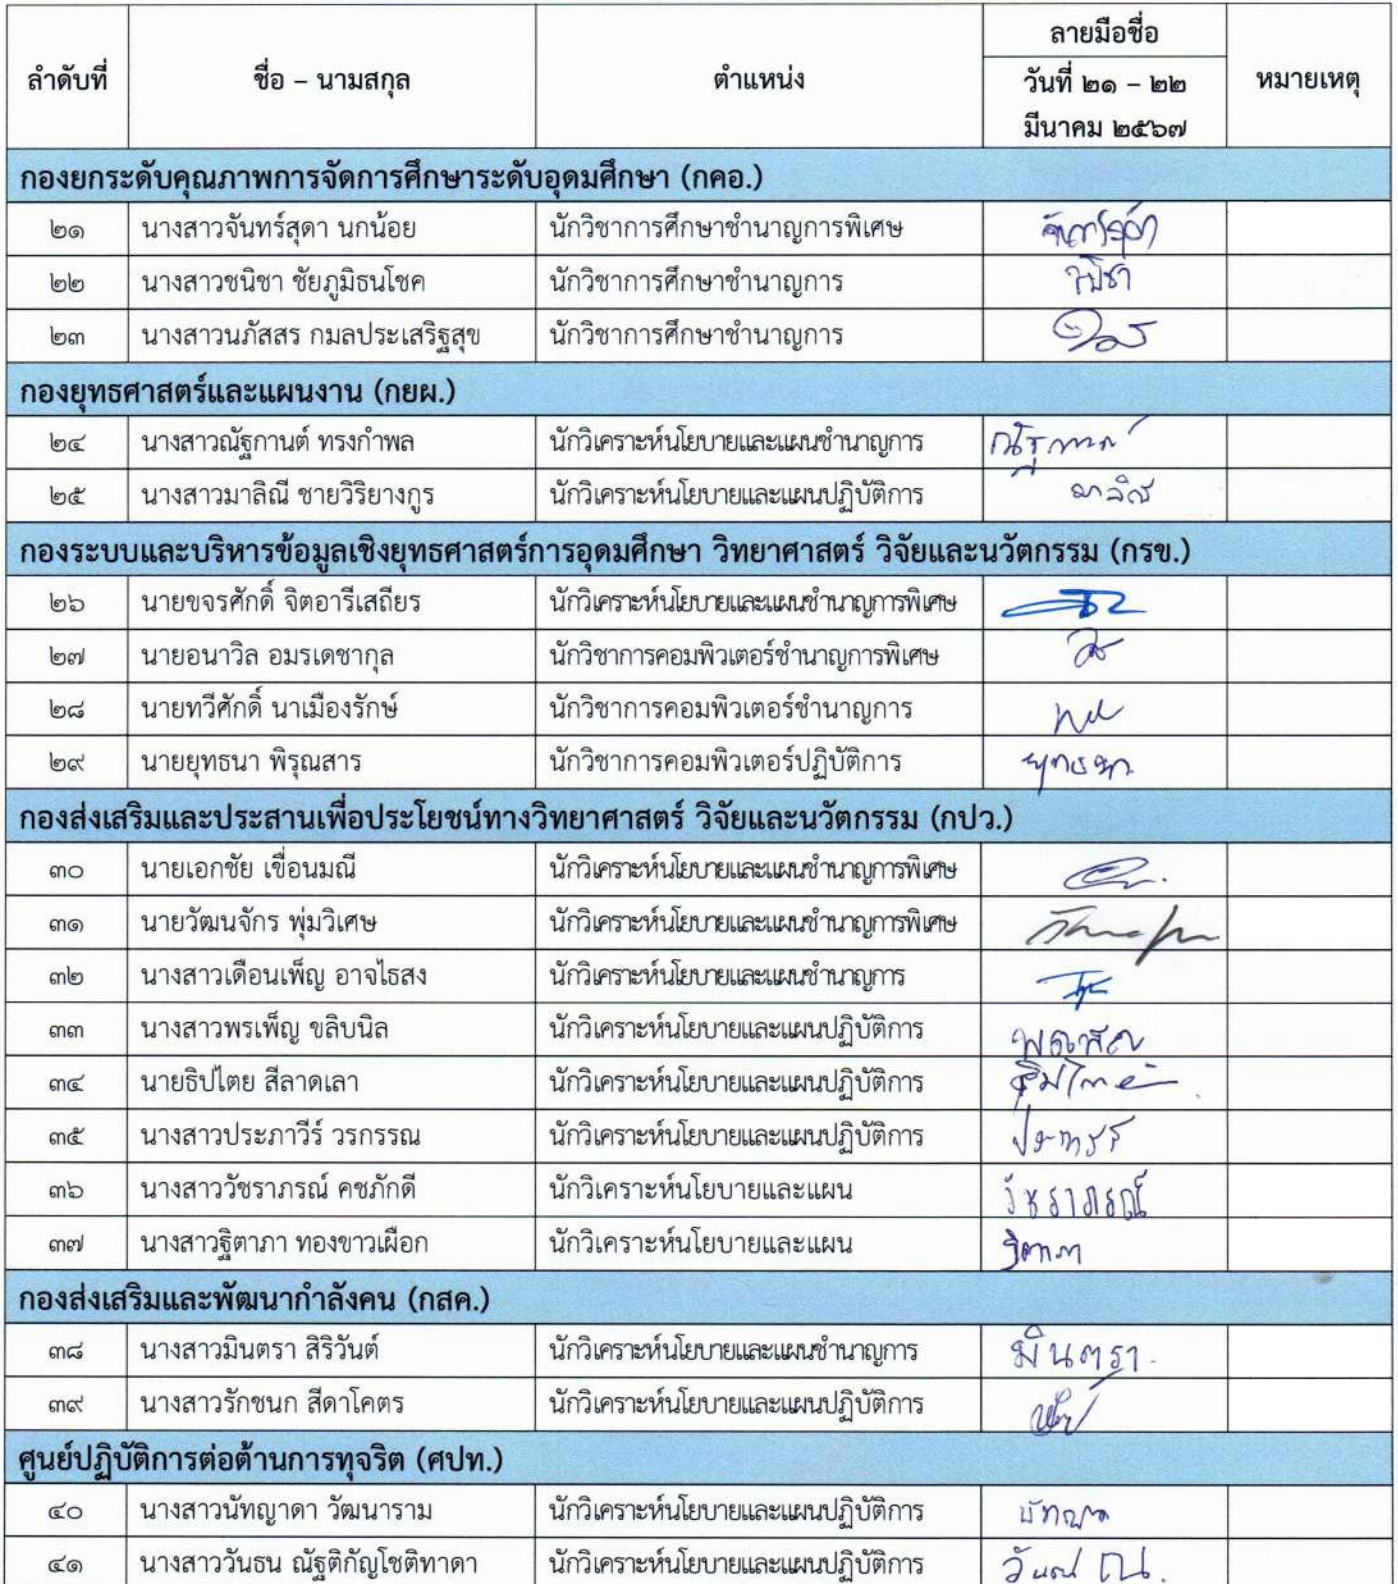 ลำดับที่ ชื่อ – นามสกุล ตำแหน่ง ลายมือชื่อ วันที่ ๒๑ – ๒๒ มีนาคม ๒๕๖๗ หมายเหตุ
กองยกระดับคุณภาพการจัดการศึกษาระดับอุดมศึกษา (กคอ.)
๒๑ นางสาวจันทร์สุดา นกน้อย นักวิชาการศึกษาชำนาญการพิเศษ
๒๒ นางสาวชนิชา ชัยภูมิธนโชค นักวิชาการศึกษาชำนาญการ
๒๓ นางสาวนภัสสร กมลประเสริฐสุข นักวิชาการศึกษาชำนาญการ
กองยุทธศาสตร์และแผนงาน (กยผ.)
๒๔ นางสาวณัฐกานต์ ทรงกำพล นักวิเคราะห์นโยบายและแผนชำนาญการ
๒๕ นางสาวมาลิณี ชายวิริยางกูร นักวิเคราะห์นโยบายและแผนปฏิบัติการ มาลิณี
กองระบบและบริหารข้อมูลเชิงยุทธศาสตร์การอุดมศึกษา วิทยาศาสตร์ วิจัยและนวัตกรรม (กรข.)
๒๖ นายขจรศักดิ์ จิตอารีเสถียร นักวิเคราะห์นโยบายและแผนชำนาญการพิเศษ
๒๗ นายอนาวิล อมรเดชากุล นักวิชาการคอมพิวเตอร์ชำนาญการพิเศษ
๒๘ นายทวีศักดิ์ นาเมืองรักษ์ นักวิชาการคอมพิวเตอร์ชำนาญการ
๒๙ นายยุทธนา พิรุณสาร นักวิชาการคอมพิวเตอร์ปฏิบัติการ ยุทธนา
กองส่งเสริมและประสานเพื่อประโยชน์ทางวิทยาศาสตร์ วิจัยและนวัตกรรม (กปว.)
๓๐ นายเอกชัย เขื่อนมณี นักวิเคราะห์นโยบายและแผนชำนาญการพิเศษ
๓๑ นายวัฒนจักร พุ่มวิเศษ นักวิเคราะห์นโยบายและแผนชำนาญการพิเศษ
๓๒ นางสาวเดือนเพ็ญ อาจไธสง นักวิเคราะห์นโยบายและแผนชำนาญการ
๓๓ นางสาวพรเพ็ญ ขลิบนิล นักวิเคราะห์นโยบายและแผนปฏิบัติการ
๓๔ นายธิปไตย สีลาดเลา นักวิเคราะห์นโยบายและแผนปฏิบัติการ
๓๕ นางสาวประภาวีร์ วรกรรณ นักวิเคราะห์นโยบายและแผนปฏิบัติการ
๓๖ นางสาววัชราภรณ์ คชภักดี นักวิเคราะห์นโยบายและแผน วัชราภรณ์
๓๗ นางสาวฐิตาภา ทองขาวเผือก นักวิเคราะห์นโยบายและแผน ฐิตาภา
กองส่งเสริมและพัฒนากำลังคน (กสค.)
๓๘ นางสาวมินตรา สิริวันต์ นักวิเคราะห์นโยบายและแผนชำนาญการ มินตรา
๓๙ นางสาวรักชนก สีดาโคตร นักวิเคราะห์นโยบายและแผนปฏิบัติการ
ศูนย์ปฏิบัติการต่อต้านการทุจริต (ศปท.)
๔๐ นางสาวนัทญาดา วัฒนาราม นักวิเคราะห์นโยบายและแผนปฏิบัติการ
๔๑ นางสาววันธน ณัฐติกัญโชติทาดา นักวิเคราะห์นโยบายและแผนปฏิบัติการ